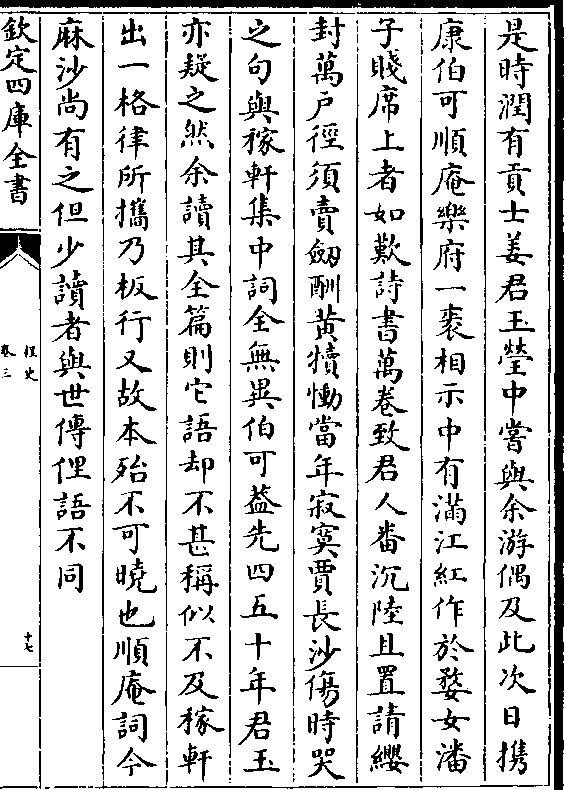 是時潤有貢士姜君玉瑩中嘗與余游偶及此次日携
康伯可順庵樂府一裘相示中有滿江紅作於婺女潘
子賤席上者如歎詩書萬卷致君人畨沉陸且置請纓
封萬戸徑須賣劒酬黄犢慟當年寂寞賈長沙傷時哭
之句與稼軒集中詞全無異伯可葢先四五十年君玉
亦疑之然余讀其全篇則它語却不甚稱似不及稼軒
出一格律所攜乃板行又故本殆不可曉也順庵詞今
麻沙尚有之但少讀者與世傳俚語不同
欽定四庫全書
桯史
卷三
十七